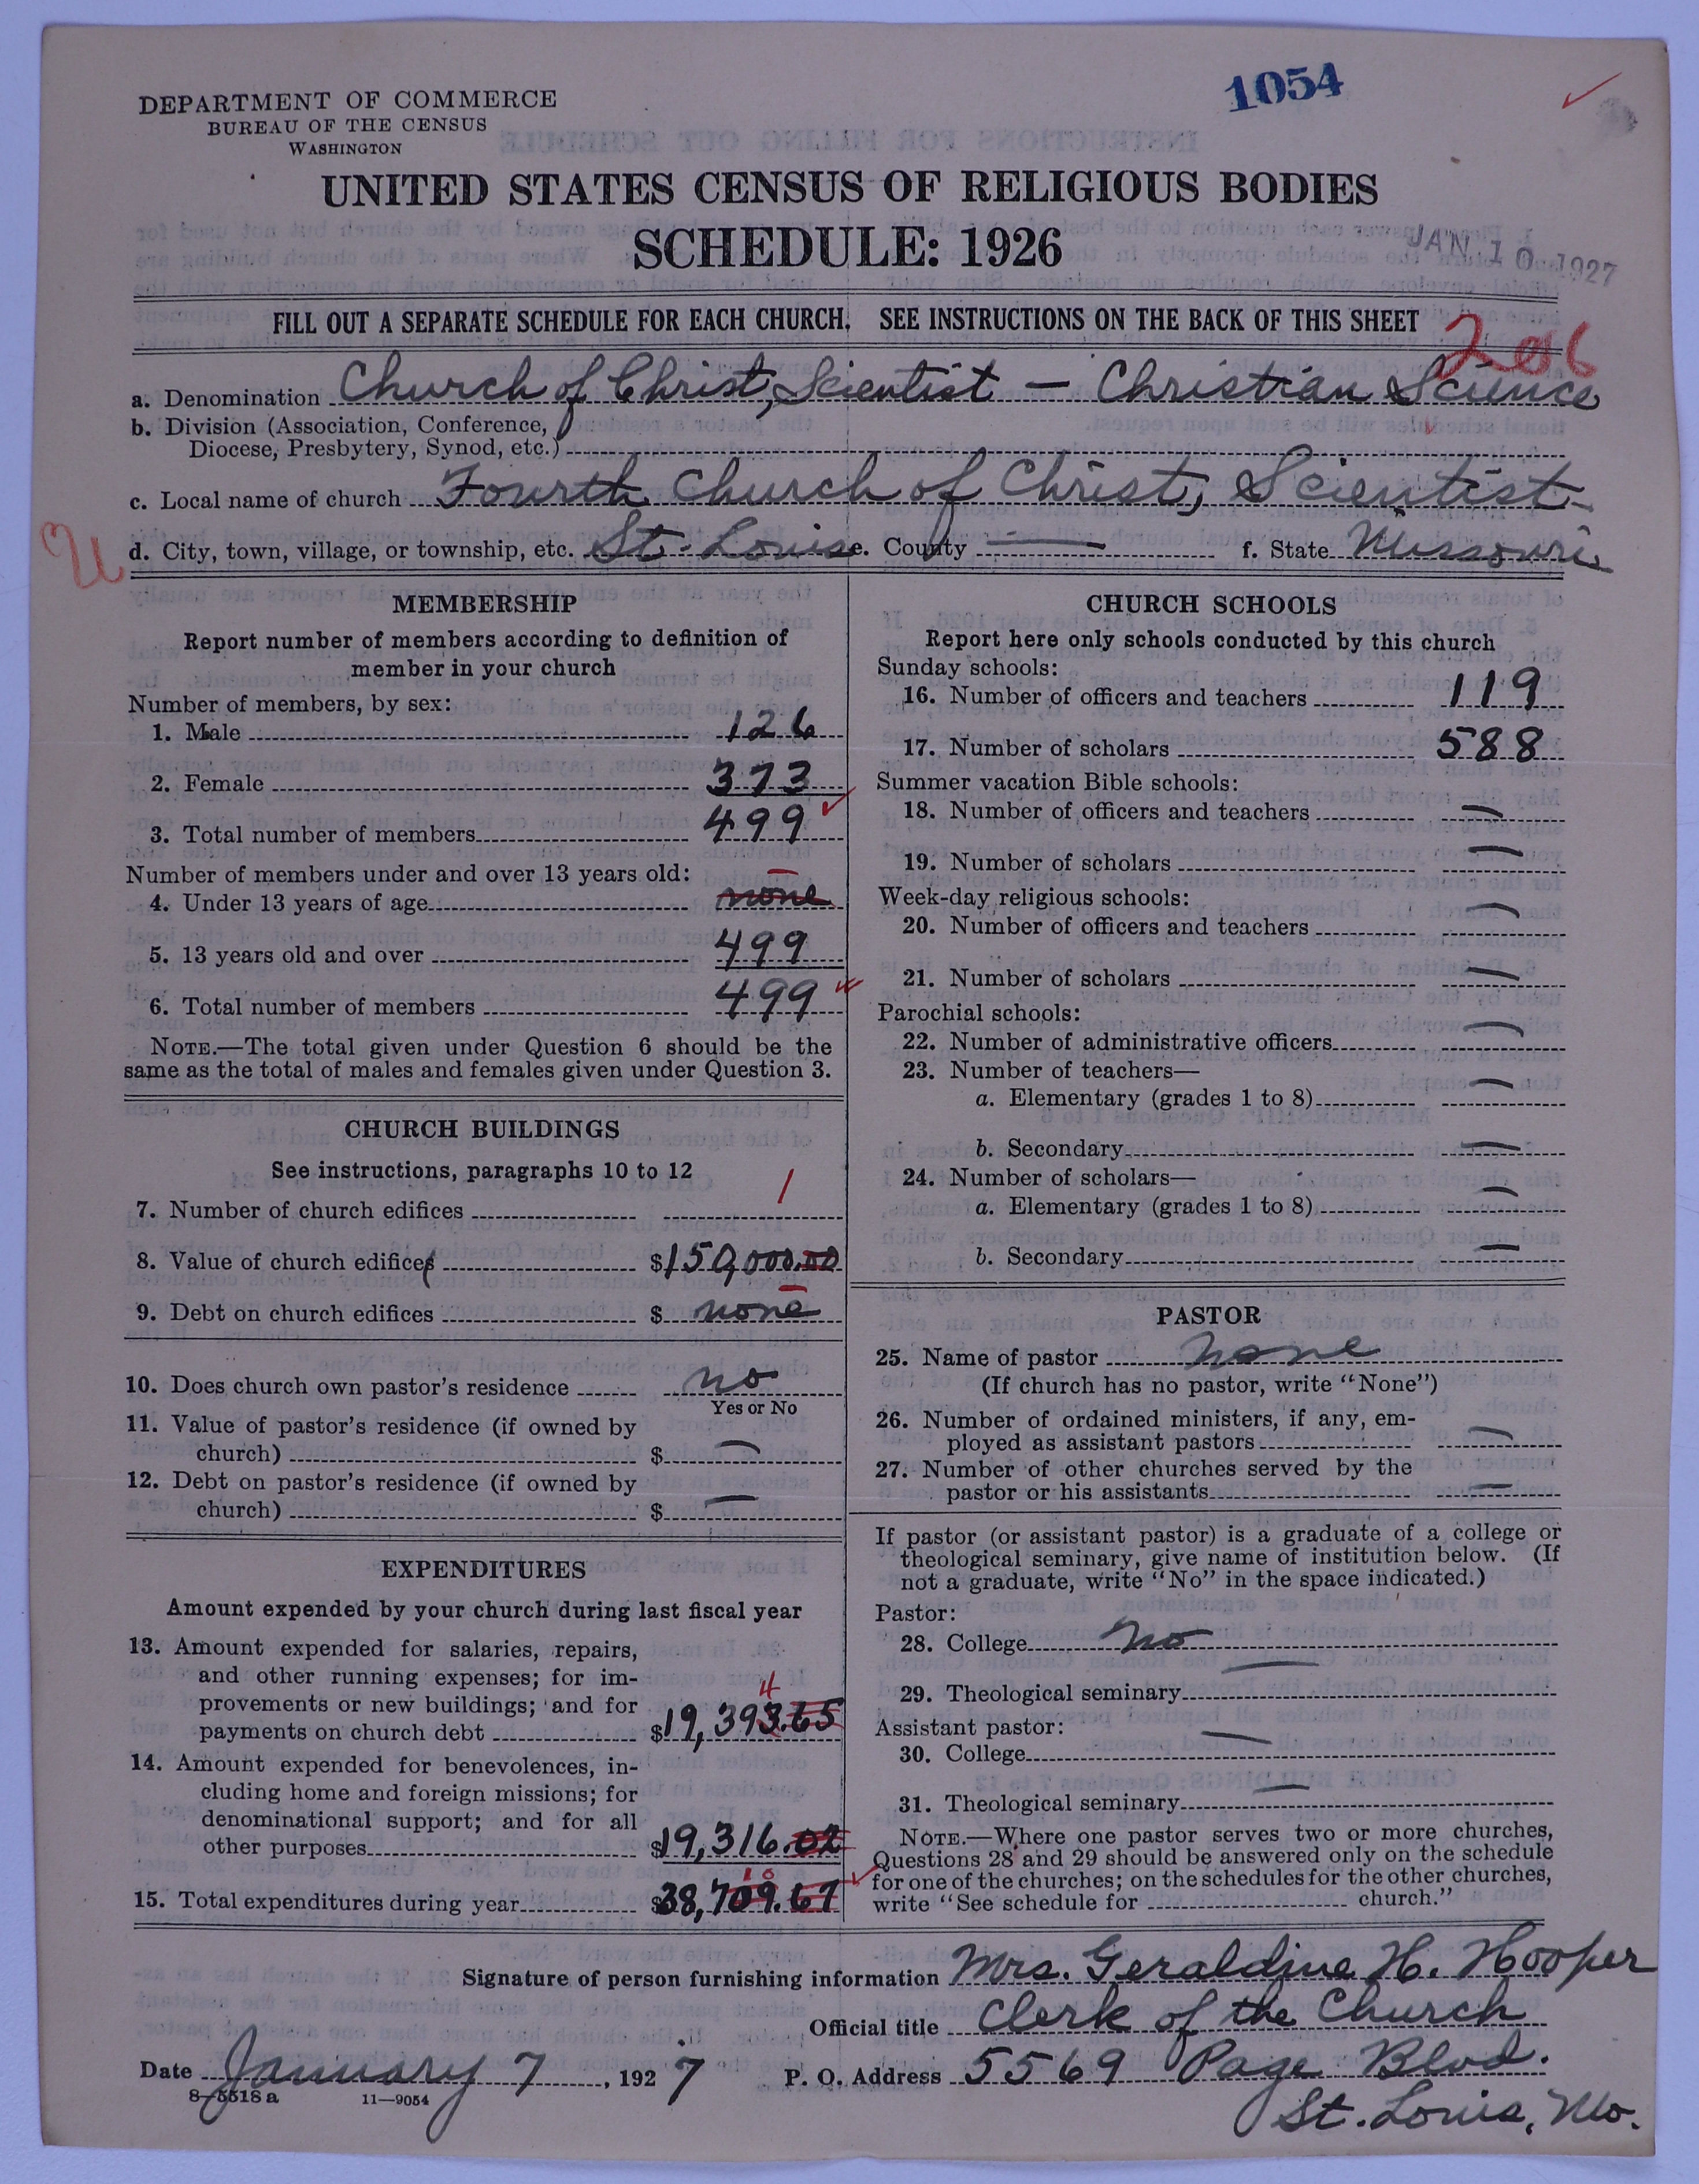 1054
DEPARTMENT OF COMMERCE
BUREAU OF THE CENSUS
WASHINGTON
UNITED STATES CENSUS OF RELIGIOUS BODIES
SCHEDULE: 1926
JAN 10 1927
FILL OUT A SEPARATE SCHEDULE FOR EACH CHURCH. SEE INSTRUCTIONS ON THE BACK OF THIS SHEET
206
a. Denomination Church of Christ, Scientist — Christian Science
b. Division (Association, Conference,
Diocese, Presbytery, Synod, etc.)
c. Local name of church Fourth Church of Christ, Scientist
d. City, town, village, or township, etc. St. Louis e. County — f. State Missouri
MEMBERSHIP
Report number of members according to definition of
member in your church
Number of members, by sex:
1. Male 126
2. Female 373
3. Total number of members 499
Number of members under and over 13 years old:
4. Under 13 years of age none
5. 13 years old and over 499
6. Total number of members 499
NOTE.—The total given under Question 6 should be the
same as the total of males and females given under Question 3.
CHURCH BUILDINGS
See instructions, paragraphs 10 to 12
7. Number of church edifices 1
8. Value of church edifices $150,000.00
9. Debt on church edifices $ none
10. Does church own pastor's residence no
Yes or No
11. Value of pastor's residence (if owned by
church) $ —
12. Debt on pastor's residence (if owned by
church) $ —
EXPENDITURES
Amount expended by your church during last fiscal year
13. Amount expended for salaries, repairs,
and other running expenses; for im-
provements or new buildings; and for
4
payments on church debt $19,393.65
14. Amount expended for benevolences, in-
cluding home and foreign missions; for
denominational support; and for all
other purposes $19,316.02
10
15. Total expenditures during year $38,709.67
CHURCH SCHOOLS
Report here only schools conducted by this church
Sunday schools:
16. Number of officers and teachers 119
17. Number of scholars 588
Summer vacation Bible schools:
18. Number of officers and teachers —
19. Number of scholars —
Week-day religious schools:
20. Number of officers and teachers —
21. Number of scholars —
Parochial schools:
22. Number of administrative officers —
23. Number of teachers—
a. Elementary (grades 1 to 8) —
b. Secondary —
24. Number of scholars—
a. Elementary (grades 1 to 8) —
b. Secondary —
PASTOR
25. Name of pastor none
(If church has no pastor, write "None")
26. Number of ordained ministers, if any, em-
ployed as assistant pastors —
27. Number of other churches served by the
pastor or his assistants —
If pastor (or assistant pastor) is a graduate of a college or
theological seminary, give name of institution below. (If
not a graduate, write "No" in the space indicated.)
Pastor:
28. College no
29. Theological seminary —
Assistant pastor:
30. College —
31. Theological seminary —
NOTE.—Where one pastor serves two or more churches,
Questions 28 and 29 should be answered only on the schedule
for one of the churches; on the schedules for the other churches,
write "See schedule for church."
Signature of person furnishing information Mrs. Geraldine H. Hooper
Official title Clerk of the Church
Date January 7, 1927 P. O. Address 5569 Page Blvd.
St. Louis, Mo.
8—5518 a 11—9054